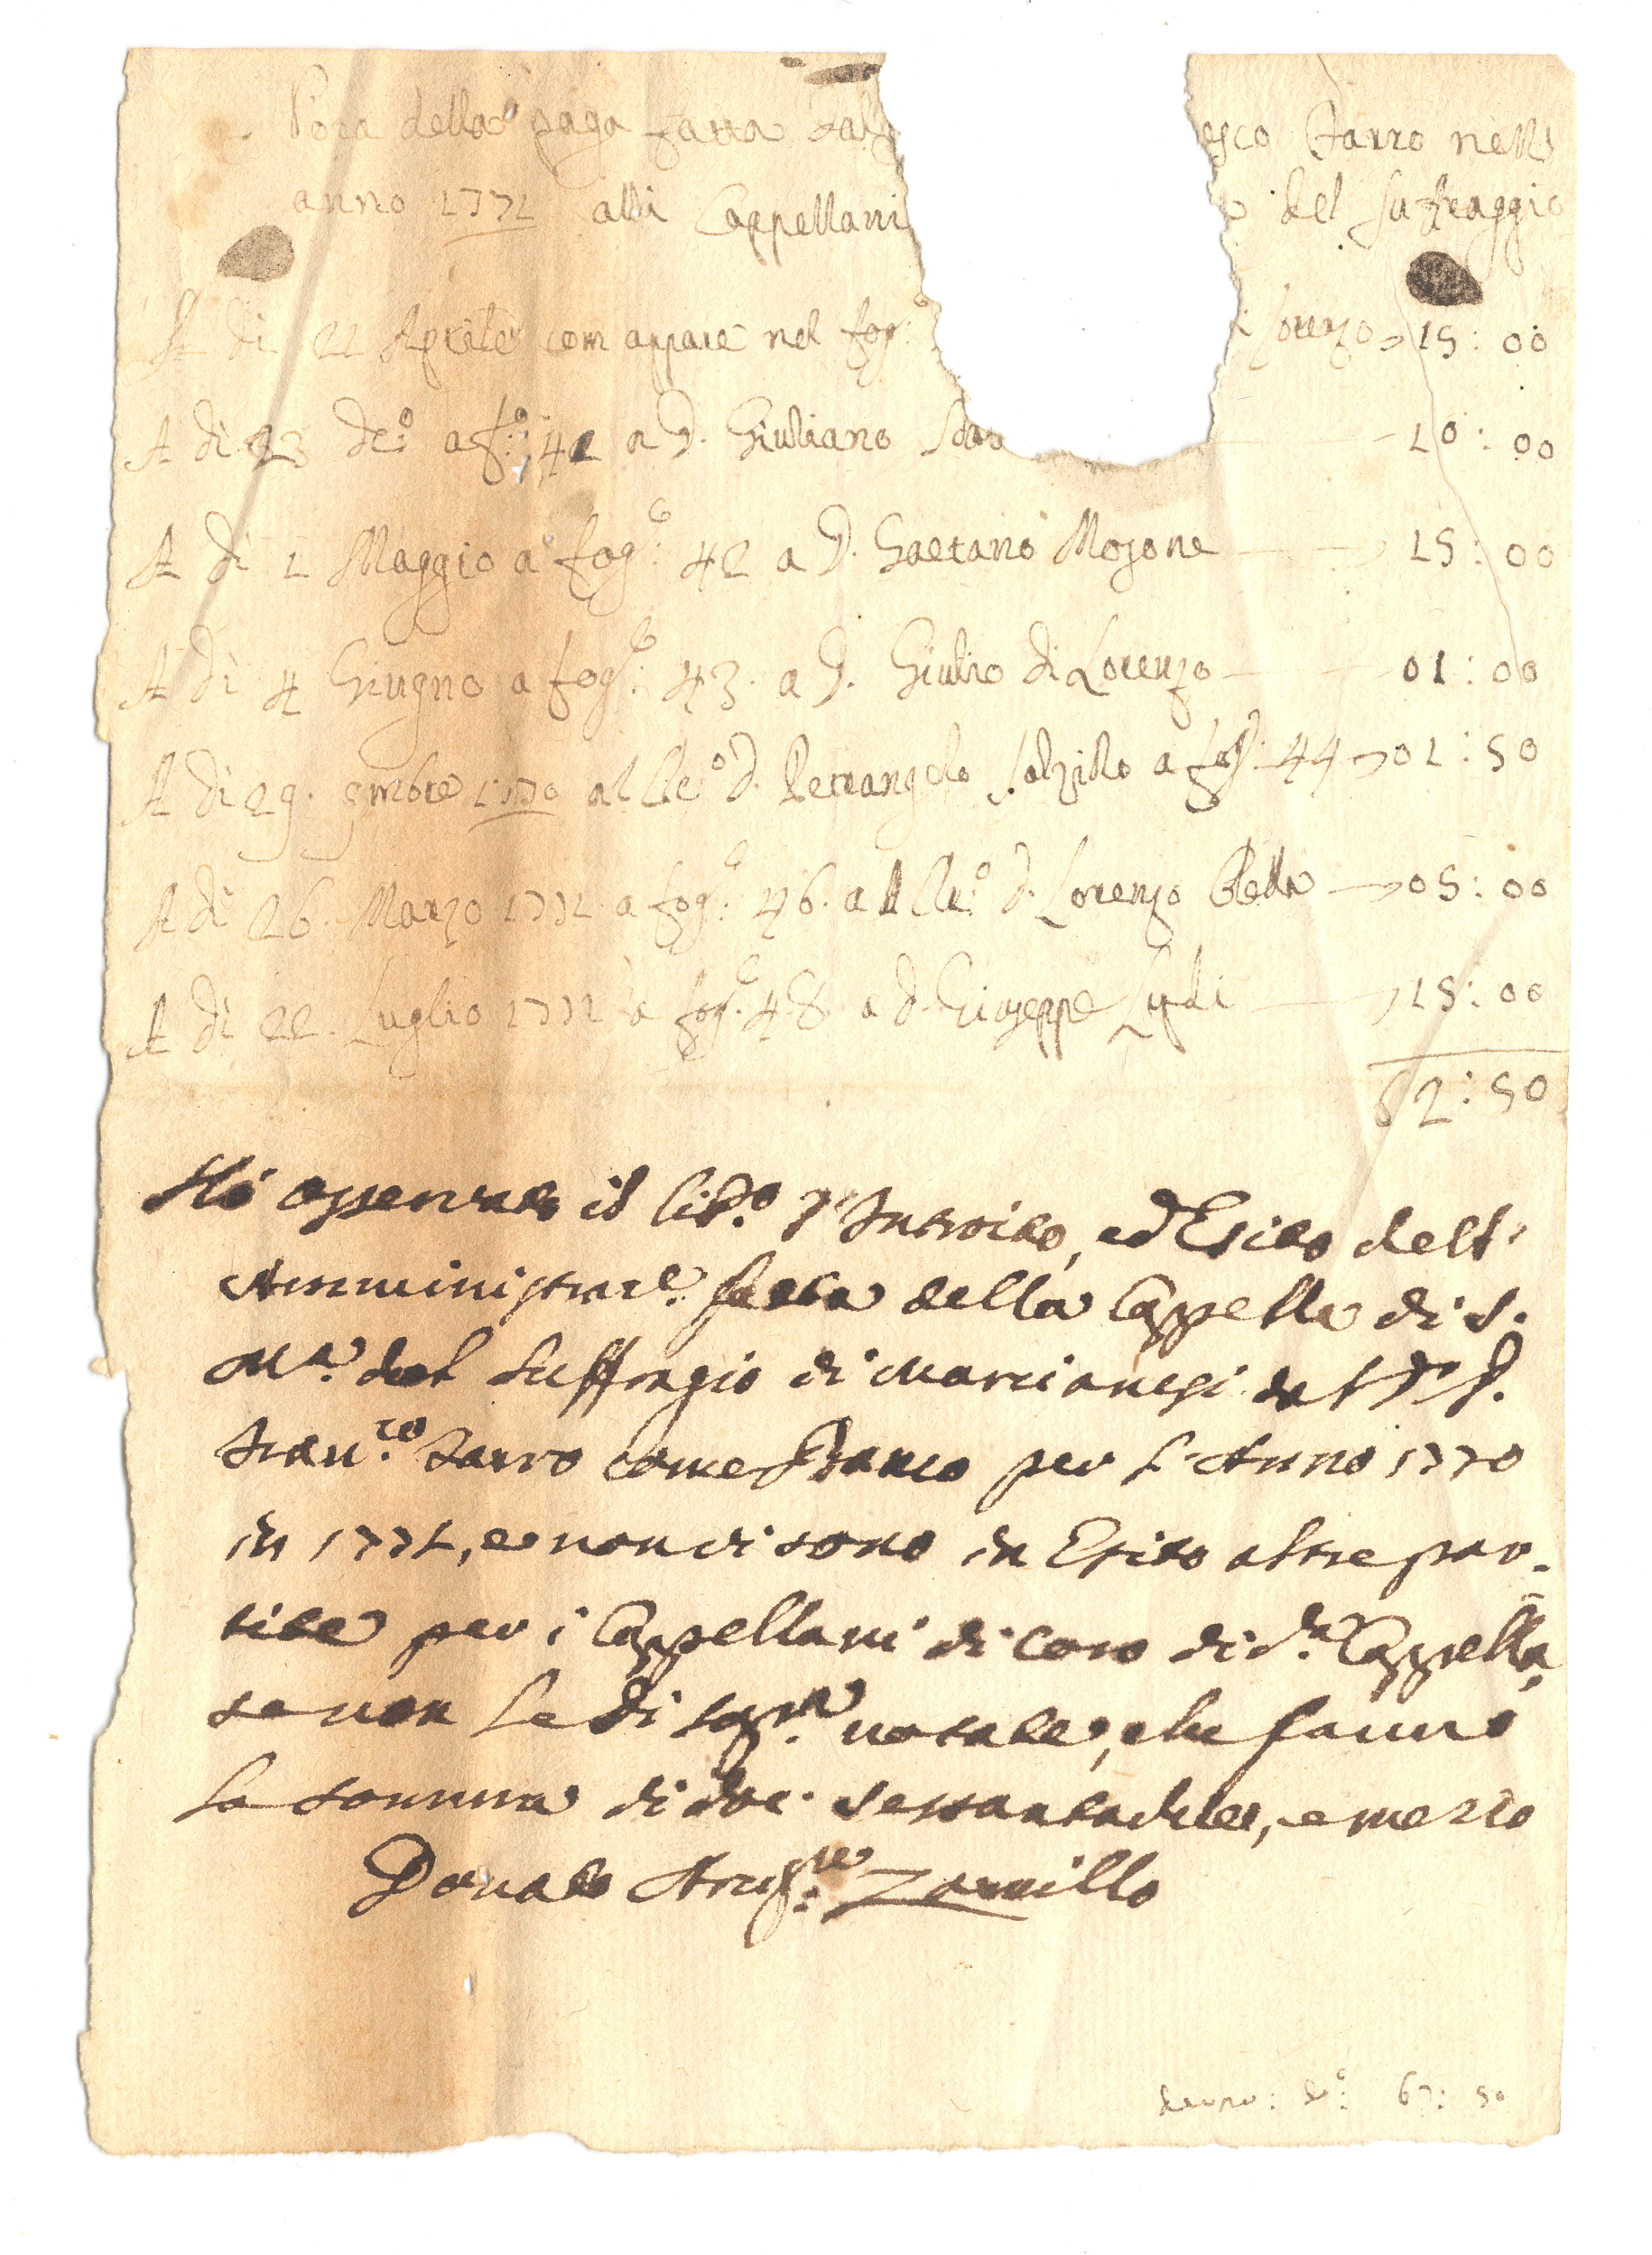 Nota della paga fatta dal
esco Tarro nell
anno 1771 alli Cappellani
o del Sufraggio
A di 21 Aprile com appare nel fog:o
i Lorenzo 15: 00
A di 23 do: a f:o 41 a D. Giuliano 10: 00
A di 1 Maggio a fog:o 42 a D. Gaetano Mosone 15: 00
A di 4 Giugno a fog:o 43. a D. Giulio di Lorenzo 01: 00
A di 29. 9mbre 1770 al Cle:o D. Petrangelo Salzillo a fog: 44 01: 50
A di 26. Marzo 1771 a fog:o 46. al Cle:o D. Lorenzo Bella 05: 00
A di 22. Luglio 1771 a fog:o 48 a D. Giuseppe 15: 00
62: 50
Hò osservato il Lib.o d'Introito, ed Esito dell'
Amministraz.e fatta della Cappella di S.
M.a del Suffragio di Marcianisi dal
Fran.co Tarro come per l'Anno 1770
in 1771, e non vi sono in Esito altre par-
tite per i Cappellani di Coro di d.a Cappella,
se non le di sop.a notate, che fanno
la somma di doc. sessantadue, e mezzo
Donato Ang.le Zarrillo
do: 67: 50